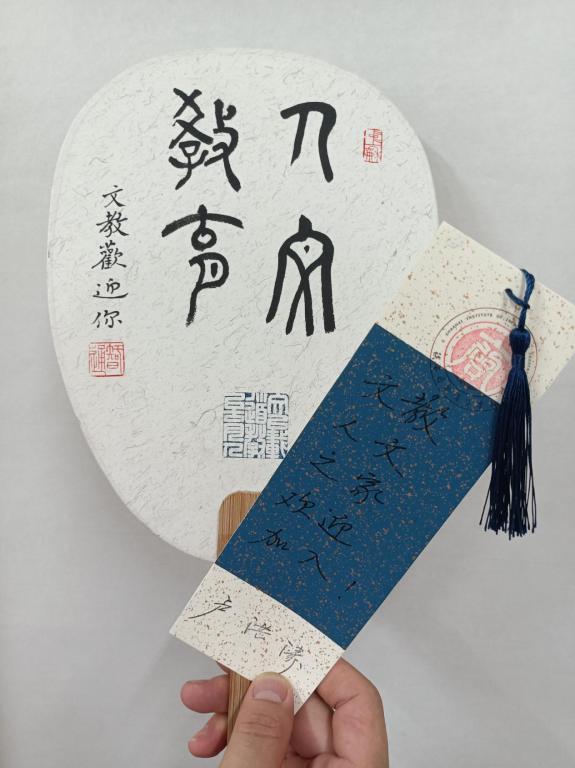 人文
教育
文教歡迎你
文教
人文
之家
欢迎
加入！
卢
SHANGHAI INSTITUTE OF